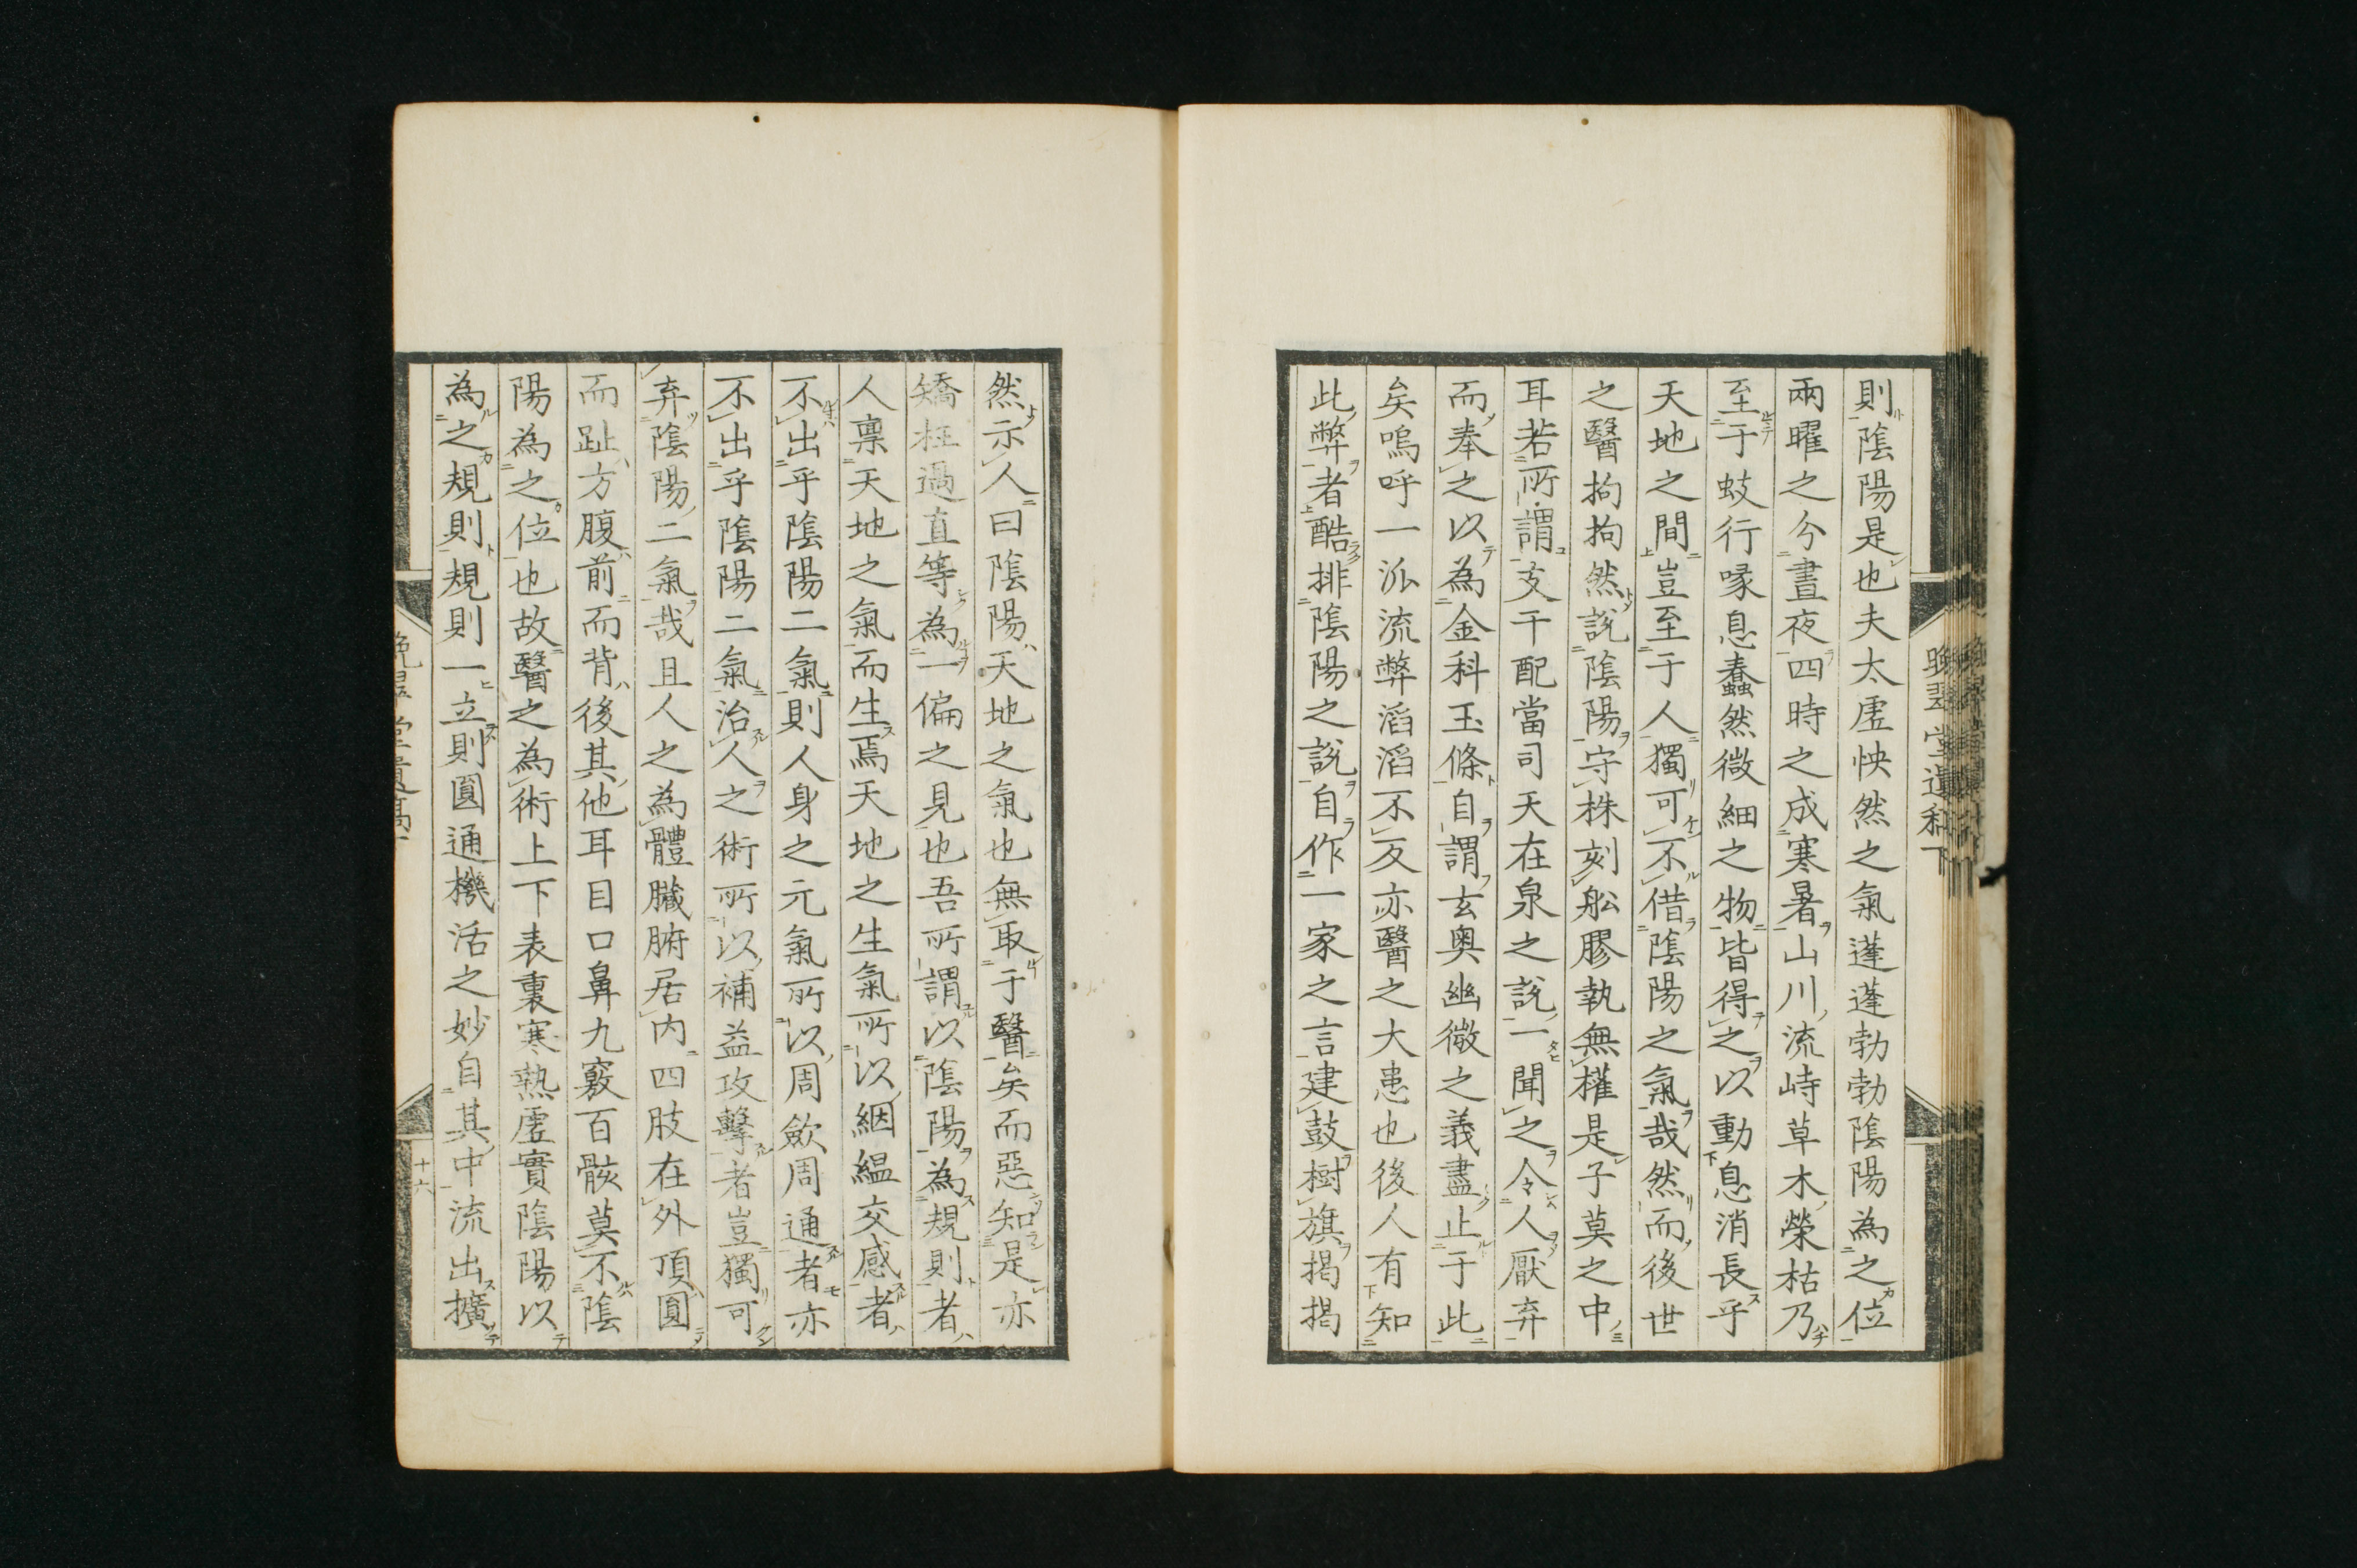 則陰陽是也夫太虛怏然之氣蓬蓬勃勃陰陽為之位
兩曜之分晝夜四時之成寒暑山川流峙草木榮枯乃
至于蚑行喙息蠢然微細之物皆得之以動息消長乎
天地之間豈至于人獨可不借陰陽之氣哉然而後世
之醫拘拘然說陰陽守株刻舩膠執無權是子莫之中
耳若所謂支干配當司天在泉之說一聞之令人厭弃
而奉之以為金科玉條自謂玄奧幽微之義盡止于此
矣嗚呼一派流弊滔滔不反亦醫之大患也後人有知
此弊者酷排陰陽之說自作一家之言建鼓樹旗揭揭
晚翠堂遺稿下
然示人曰陰陽天地之氣也無取于醫矣而惡知是亦
矯枉過直等為一偏之見也吾所謂以陰陽為規則者
人稟天地之氣而生焉天地之生氣所以絪縕交感者
不出乎陰陽二氣則人身之元氣所以周歛周通者亦
不出乎陰陽二氣治人之術所以補益攻擊者豈獨可
弃陰陽二氣哉且人之為體臟腑居內四肢在外頂圓
而趾方腹前而背後其他耳目口鼻九竅百骸莫不陰
陽為之位也故醫之為術上下表裏寒熱虛實陰陽以
為之規則規則一立則圓通機活之妙自其中流出擴
晚翠堂遺稿下
十六